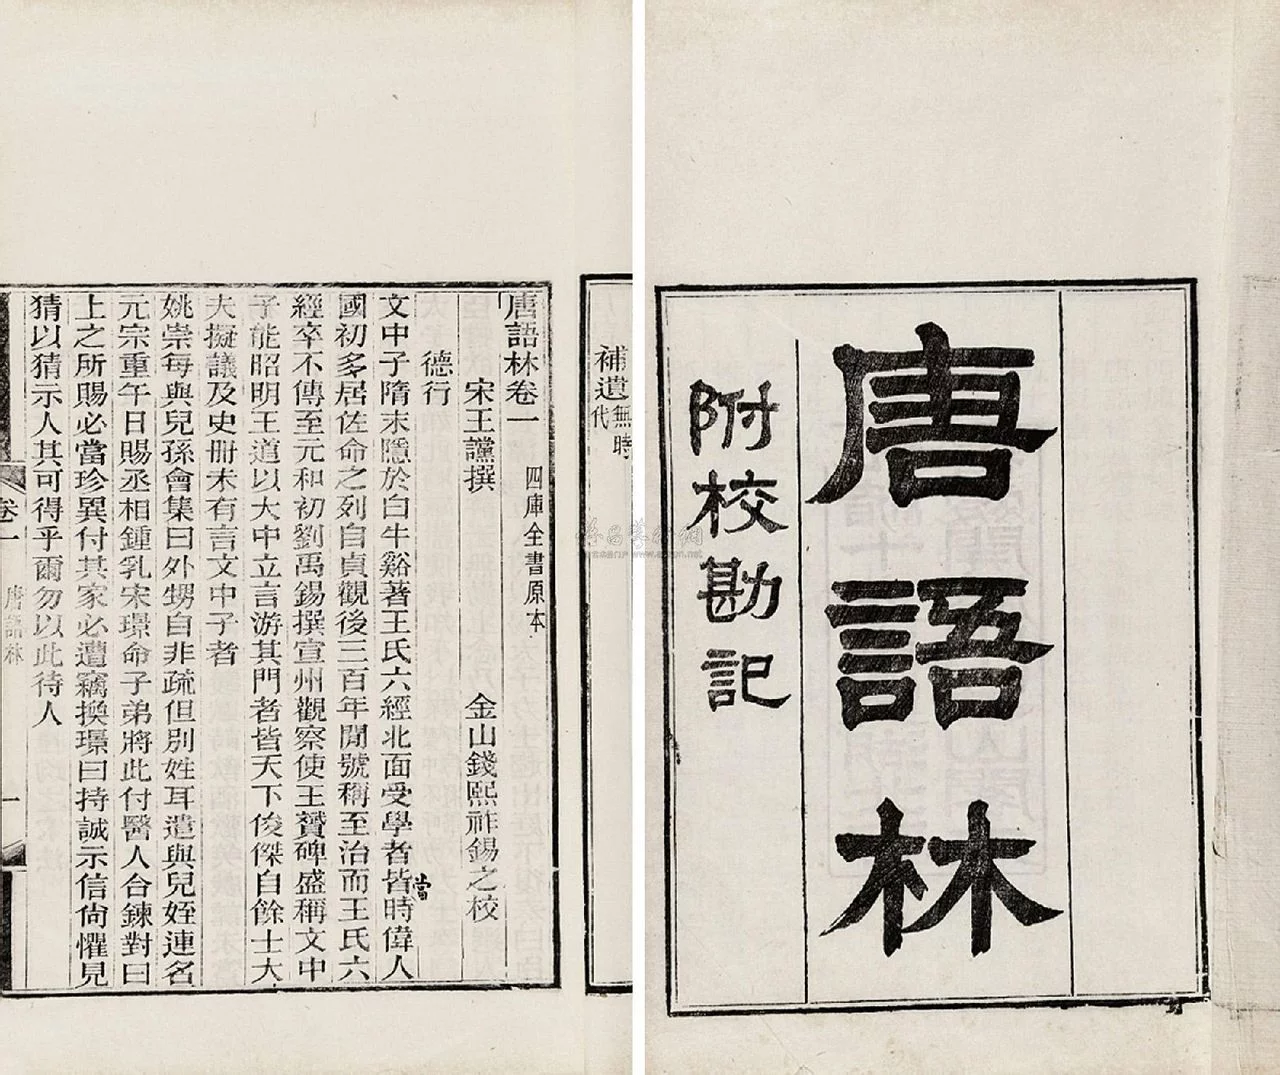 唐語林
附校勘記
補遺無時代
唐語林卷一 四庫全書原本
宋王讜撰 金山錢熙祚錫之校
德行
文中子隋末隱於白牛谿著王氏六經北面受學者皆時偉人
當
國初多居佐命之列自貞觀後三百年間號稱至治而王氏六
經卒不傳至元和初劉禹錫撰宣州觀察使王贊碑盛稱文中
子能昭明王道以大中立言游其門者皆天下俊傑自餘士大
夫擬議及史冊未有言文中子者
姚崇每與兒孫會集曰外甥自非疏但別姓耳遣與兒姪連名
元宗重午日賜丞相鍾乳宋璟命子弟將此付醫人合鍊對曰
上之所賜必當珍異付其家必遭竊換璟曰持誠示信尙懼見
猜以猜示人其可得乎爾勿以此待人
卷一 唐語林 一